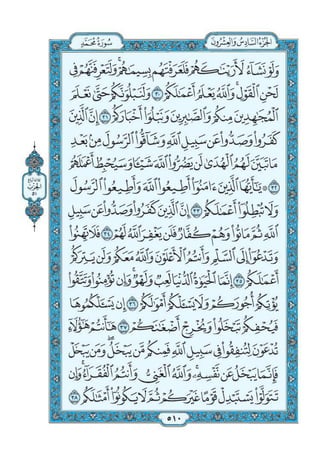 الجزء السادس والعشرون
سورة محمد
وَلَوْ نَشَآءُ لَأَرَيْنَٰكَهُمْ فَلَعَرَفْتَهُم بِسِيمَٰهُمْ ۚ وَلَتَعْرِفَنَّهُمْ فِى
لَحْنِ ٱلْقَوْلِ ۚ وَٱللَّهُ يَعْلَمُ أَعْمَٰلَكُمْ ٣٠ وَلَنَبْلُوَنَّكُمْ حَتَّىٰ نَعْلَمَ
ٱلْمُجَٰهِدِينَ مِنكُمْ وَٱلصَّٰبِرِينَ وَنَبْلُوَا۟ أَخْبَارَكُمْ ٣١ إِنَّ ٱلَّذِينَ
كَفَرُوا۟ وَصَدُّوا۟ عَن سَبِيلِ ٱللَّهِ وَشَآقُّوا۟ ٱلرَّسُولَ مِنۢ بَعْدِ
مَا تَبَيَّنَ لَهُمُ ٱلْهُدَىٰ لَن يَضُرُّوا۟ ٱللَّهَ شَيْـًٔا وَسَيُحْبِطُ أَعْمَٰلَهُمْ
٣٢ يَٰٓأَيُّهَا ٱلَّذِينَ ءَامَنُوٓا۟ أَطِيعُوا۟ ٱللَّهَ وَأَطِيعُوا۟ ٱلرَّسُولَ
وَلَا تُبْطِلُوٓا۟ أَعْمَٰلَكُمْ ٣٣ إِنَّ ٱلَّذِينَ كَفَرُوا۟ وَصَدُّوا۟ عَن سَبِيلِ
ٱللَّهِ ثُمَّ مَاتُوا۟ وَهُمْ كُفَّارٌ فَلَن يَغْفِرَ ٱللَّهُ لَهُمْ ٣٤ فَلَا تَهِنُوا۟
وَتَدْعُوٓا۟ إِلَى ٱلسَّلْمِ وَأَنتُمُ ٱلْأَعْلَوْنَ وَٱللَّهُ مَعَكُمْ وَلَن يَتِرَكُمْ
أَعْمَٰلَكُمْ ٣٥ إِنَّمَا ٱلْحَيَوٰةُ ٱلدُّنْيَا لَعِبٌ وَلَهْوٌ ۚ وَإِن تُؤْمِنُوا۟ وَتَتَّقُوا۟
يُؤْتِكُمْ أُجُورَكُمْ وَلَا يَسْـَٔلْكُمْ أَمْوَٰلَكُمْ ٣٦ إِن يَسْـَٔلْكُمُوهَا
فَيُحْفِكُمْ تَبْخَلُوا۟ وَيُخْرِجْ أَضْغَٰنَكُمْ ٣٧ هَٰٓأَنتُمْ هَٰٓؤُلَآءِ
تُدْعَوْنَ لِتُنفِقُوا۟ فِى سَبِيلِ ٱللَّهِ فَمِنكُم مَّن يَبْخَلُ ۖ وَمَن يَبْخَلْ
فَإِنَّمَا يَبْخَلُ عَن نَّفْسِهِۦ ۚ وَٱللَّهُ ٱلْغَنِىُّ وَأَنتُمُ ٱلْفُقَرَآءُ ۚ وَإِن
تَتَوَلَّوْا۟ يَسْتَبْدِلْ قَوْمًا غَيْرَكُمْ ثُمَّ لَا يَكُونُوٓا۟ أَمْثَٰلَكُم ٣٨
٥١٠